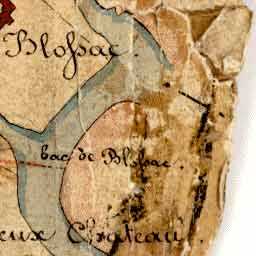 Blossac.
bac de Blossac.
eux Chateau.